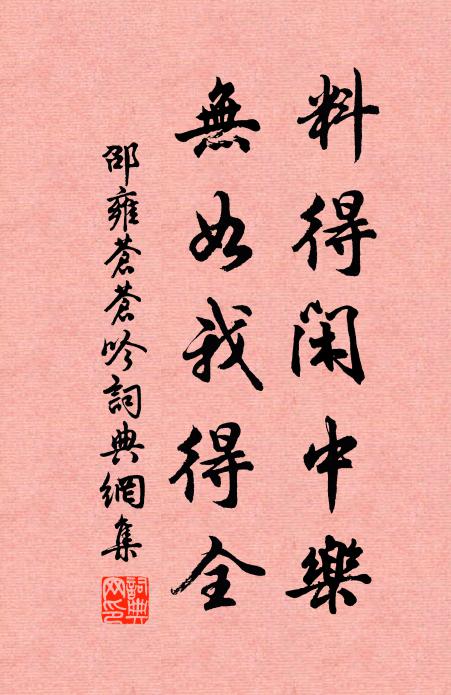 料得閑中樂
無如我得全
邵雍蒼蒼吟詞典網集
詞典
网印